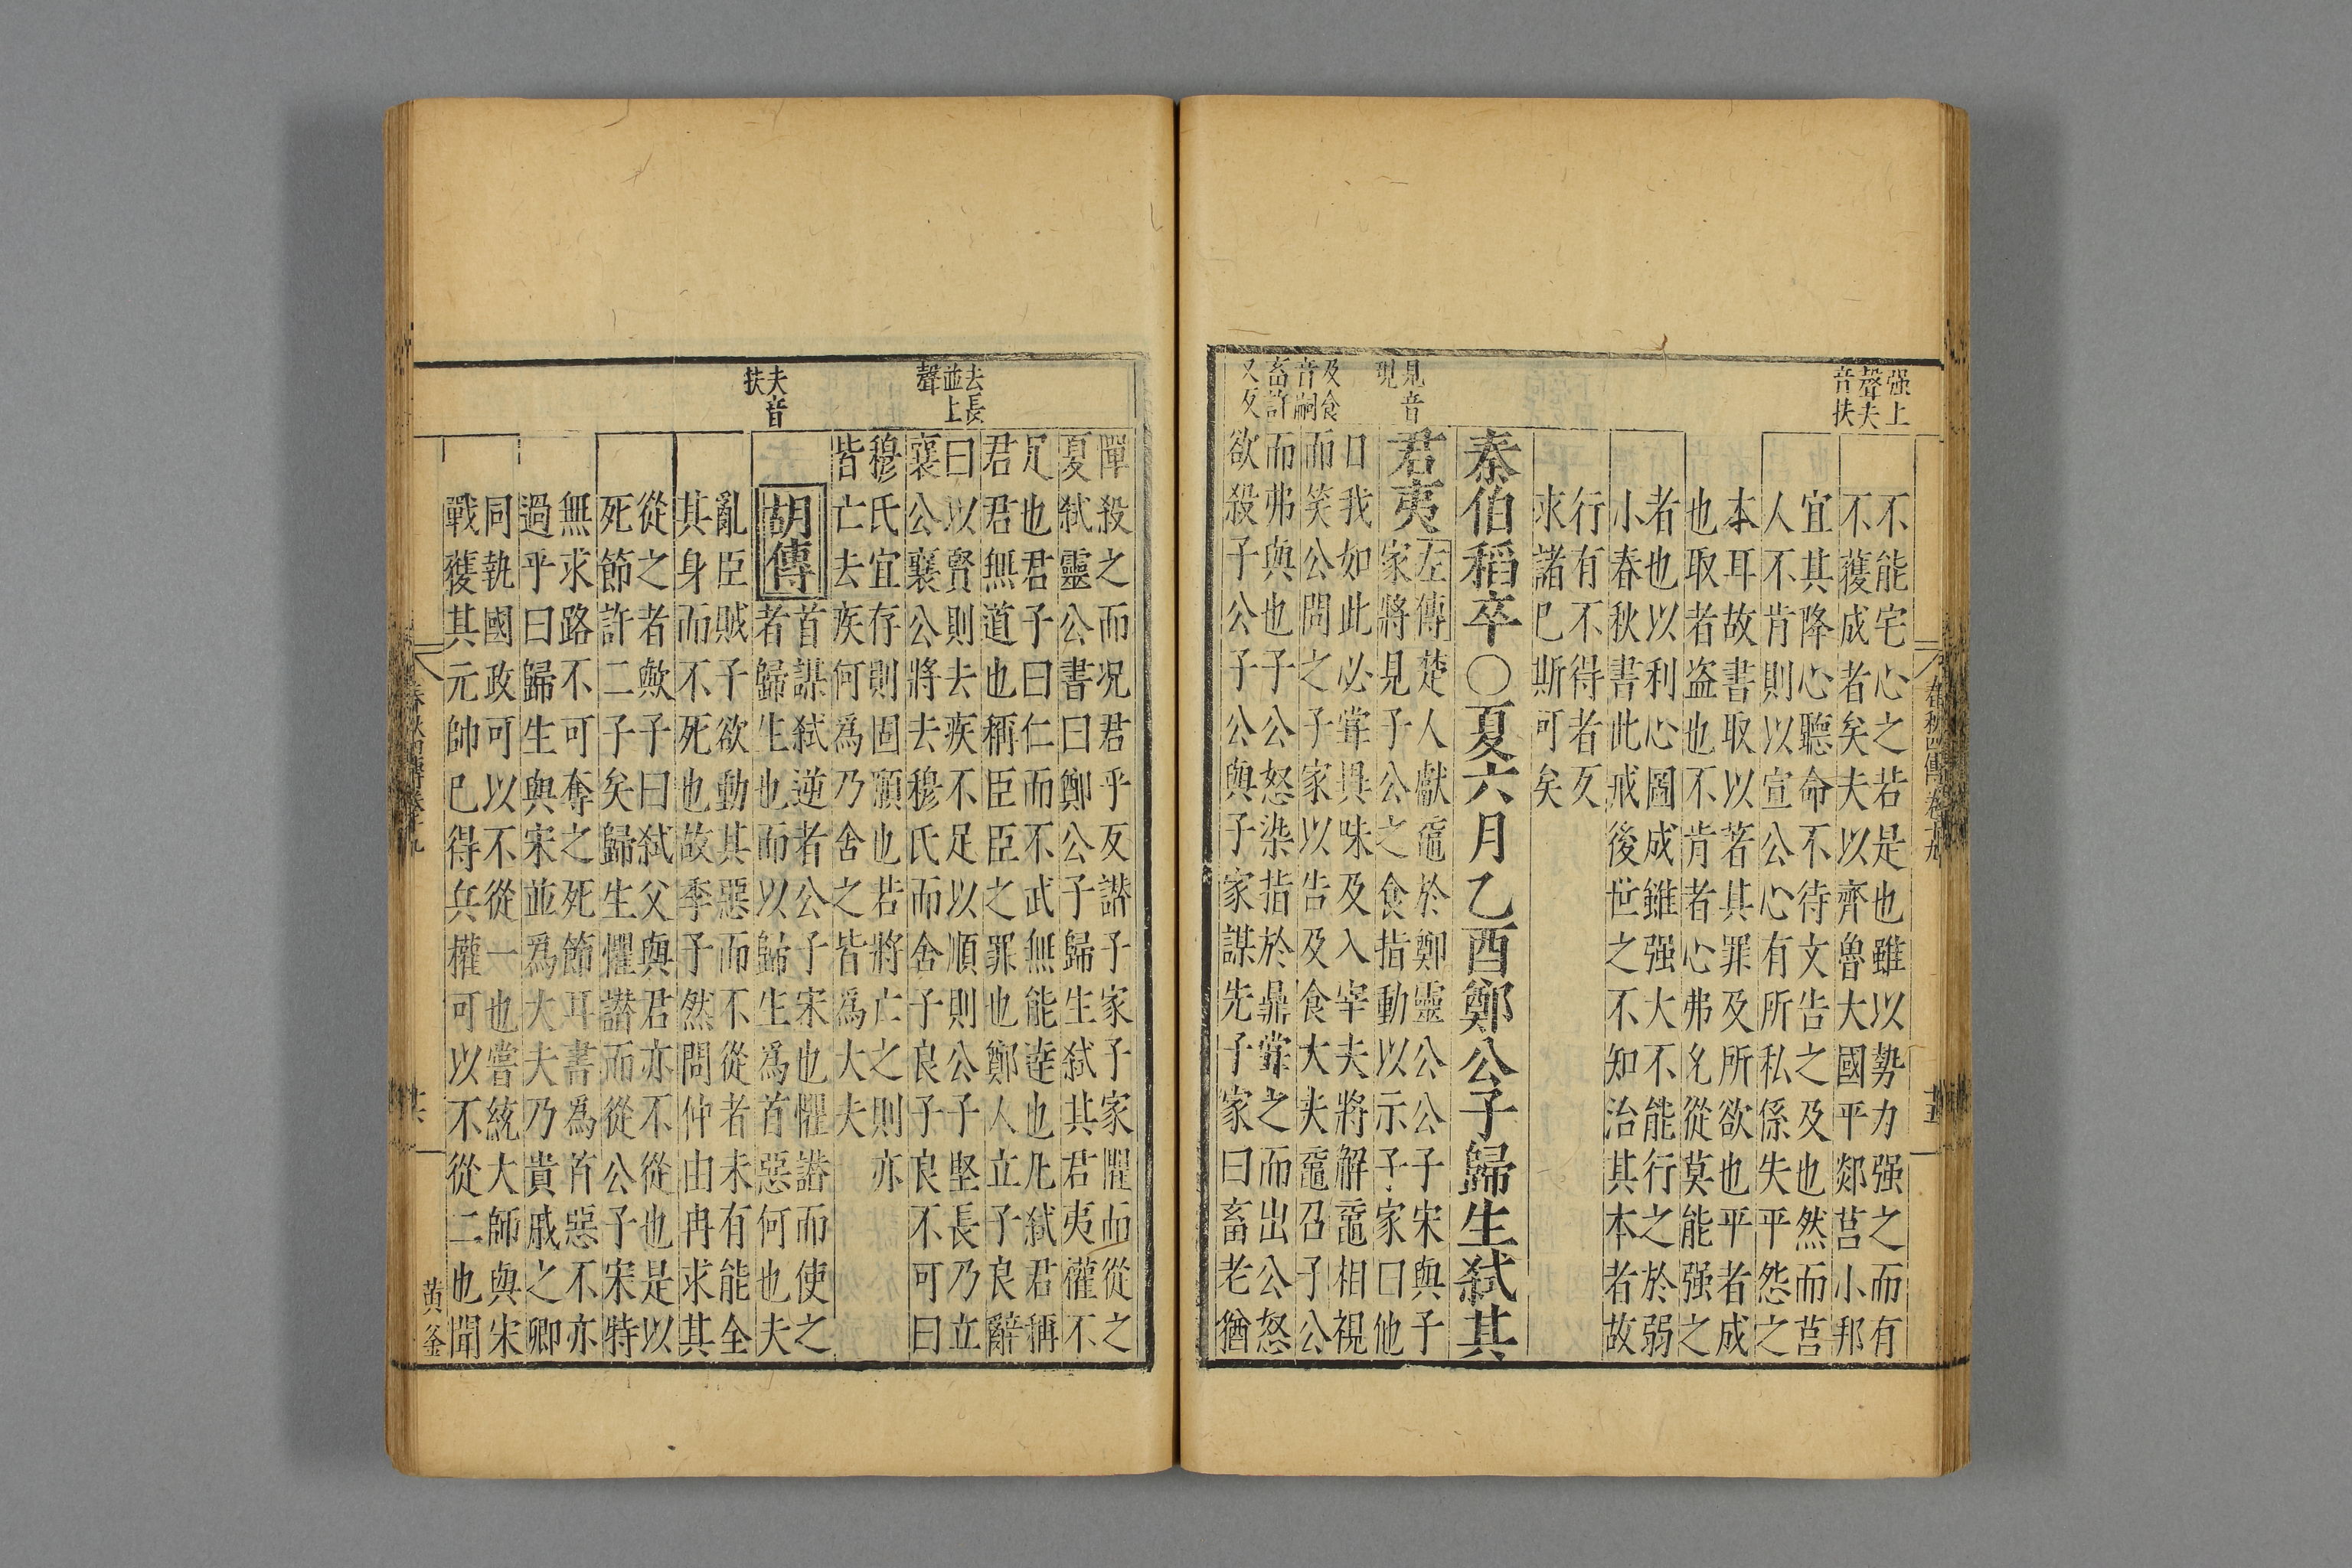 强上
聲夫
音扶
不能宅心之若是也雖以勢力强之而有
不獲成者矣夫以齊魯大國平郯莒小邦
宜其降心聽命不待文告之及也然而莒
人不肯則以宣公心有所私係失平怨之
本耳故書取以著其罪及所欲也平者成
也取者盗也不肯者心弗允從莫能强之
者也以利心圖成雖强大不能行之於弱
小春秋書此戒後世之不知治其本者故
行有不得者反
求諸己斯可矣
秦伯稻卒○夏六月乙酉鄭公子歸生弑其
見音
現
君夷
左傳楚人獻黿於鄭靈公公子宋與子
家將見子公之食指動以示子家曰他
及食
音嗣
畜許
又反
日我如此必嘗異味及入宰夫將解黿相視
而笑公問之子家以告及食大夫黿召子公
而弗與也子公怒染指於鼎嘗之而出公怒
欲殺子公子公與子家謀先子家曰畜老猶
春秋四傳卷十九
十五
憚殺之而况君乎反譖子家子家懼而從之
夏弑靈公書曰鄭公子歸生弑其君夷權不
足也君子曰仁而不武無能達也凡弑君稱
君君無道也稱臣臣之罪也鄭人立子良辭
去長
並上
聲
曰以賢則去疾不足以順則公子堅長乃立
襄公襄公將去穆氏而舍子良子良不可曰
穆氏宜存則固願也若將亡之則亦
皆亡去疾何為乃舍之皆為大夫
夫音
扶
胡傳
首謀弑逆者公子宋也懼譖而使之
者歸生也而以歸生為首惡何也夫
亂臣賊子欲動其惡而不從者未有能全
其身而不死也故季子然問仲由冉求其
從之者歟子曰弑父與君亦不從也是以
死節許二子矣歸生懼譖而從公子宋特
無求路不可奪之死節耳書為首惡不亦
過乎曰歸生與宋並為大夫乃貴戚之卿
同執國政可以不從一也嘗統大師與宋
戰獲其元帥已得兵權可以不從二也聞
十六
黄釜